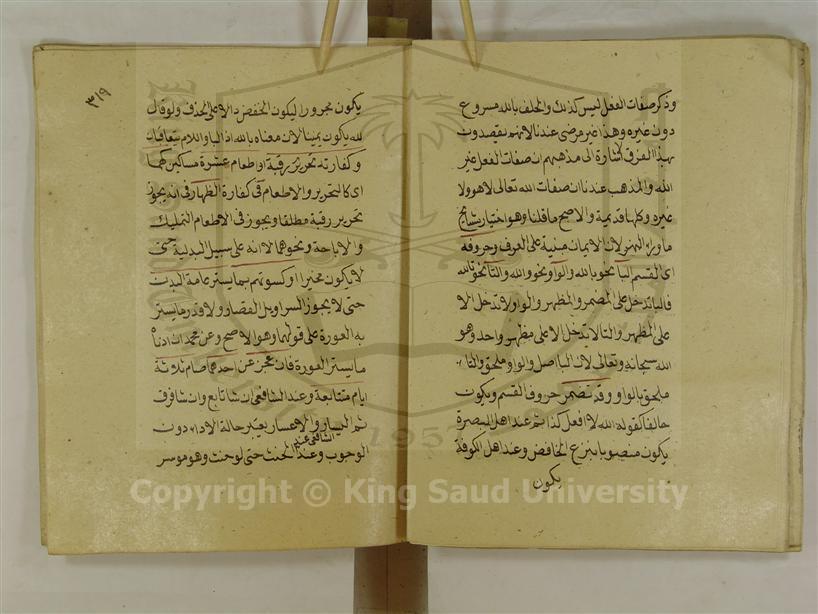 وذكر صفات الفعل ليس كذلك والحلف بالله مسروع
دون غيره وهذا غير مرضى عندنا لانهم يقصدون
بهذا الفرق اشارة الى مذهبهم ان صفات الفعل غير
الله والمذهب عندنا ان صفات الله تعالى لا هو ولا
غيره وكلها قديمة والاصح ما قلنا وهو اختيار مشايخ
ما وراء النهر لان الايمان مبنية على العرف وحروفه
اى القسم الباء نحو بالله والواو نحو والله والتاء نحو تالله
فالباء تدخل على المضمر والمظهر والواو لا تدخل الا
على المظهر والتاء لا تدخل الا على مظهر واحد وهو
الله سبحانه وتعالى لان الباء اصل والواو ملحق والتاء
ملحق بالواو وقد تضمر حروف القسم ويكون
حالفا كقوله الله لا افعل كذا ثم عند اهل البصرة
يكون منصوبا بنزع الخافض وعند اهل الكوفة
يكون
٣١٩
يكون مجرورا ليكون الخفض دالا على الحذف ولو قال
لله يكون يمينا لان معناه بالله اذ الباء واللام يتعاقبان
وكفارته تحرير رقبة او اطعام عشرة مساكين كهما
اى كالتحرير والاطعام فى كفارة الظهار فى انه يجوز
تحرير رقبة مطلقا ويجوز فى الاطعام التمليك
والاباحة ونحوهما الا انه على سبيل البدلية حتى
لا يكون مخيرا او كسوتهم بما يستر عامة البدن
حتى لا يجوز السراويل القصار ولا قدر ما يستر
به العورة على قولهما وهو الاصح وعن محمد ان ادناه
ما يستر العورة فان عجز عن احدهما صام ثلاثة
ايام متتابعة وعند الشافعى ان شاء تابع وان شاء فرق
ثم اليسار والاعسار يعتبر حالة الاداء دون
الوجوب وعند الشافعى الحنث حتى لو حنث وهو موسر
Copyright © King Saud University
1957